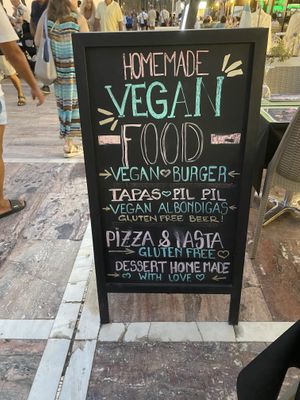 HOMEMADE
VEGAN
FOOD
VEGAN BURGER
TAPAS PIL PIL
VEGAN ALBONDIGAS
GLUTEN FREE BEER!
PIZZA & PASTA
GLUTEN FREE
DESSERT HOME MADE
WITH LOVE